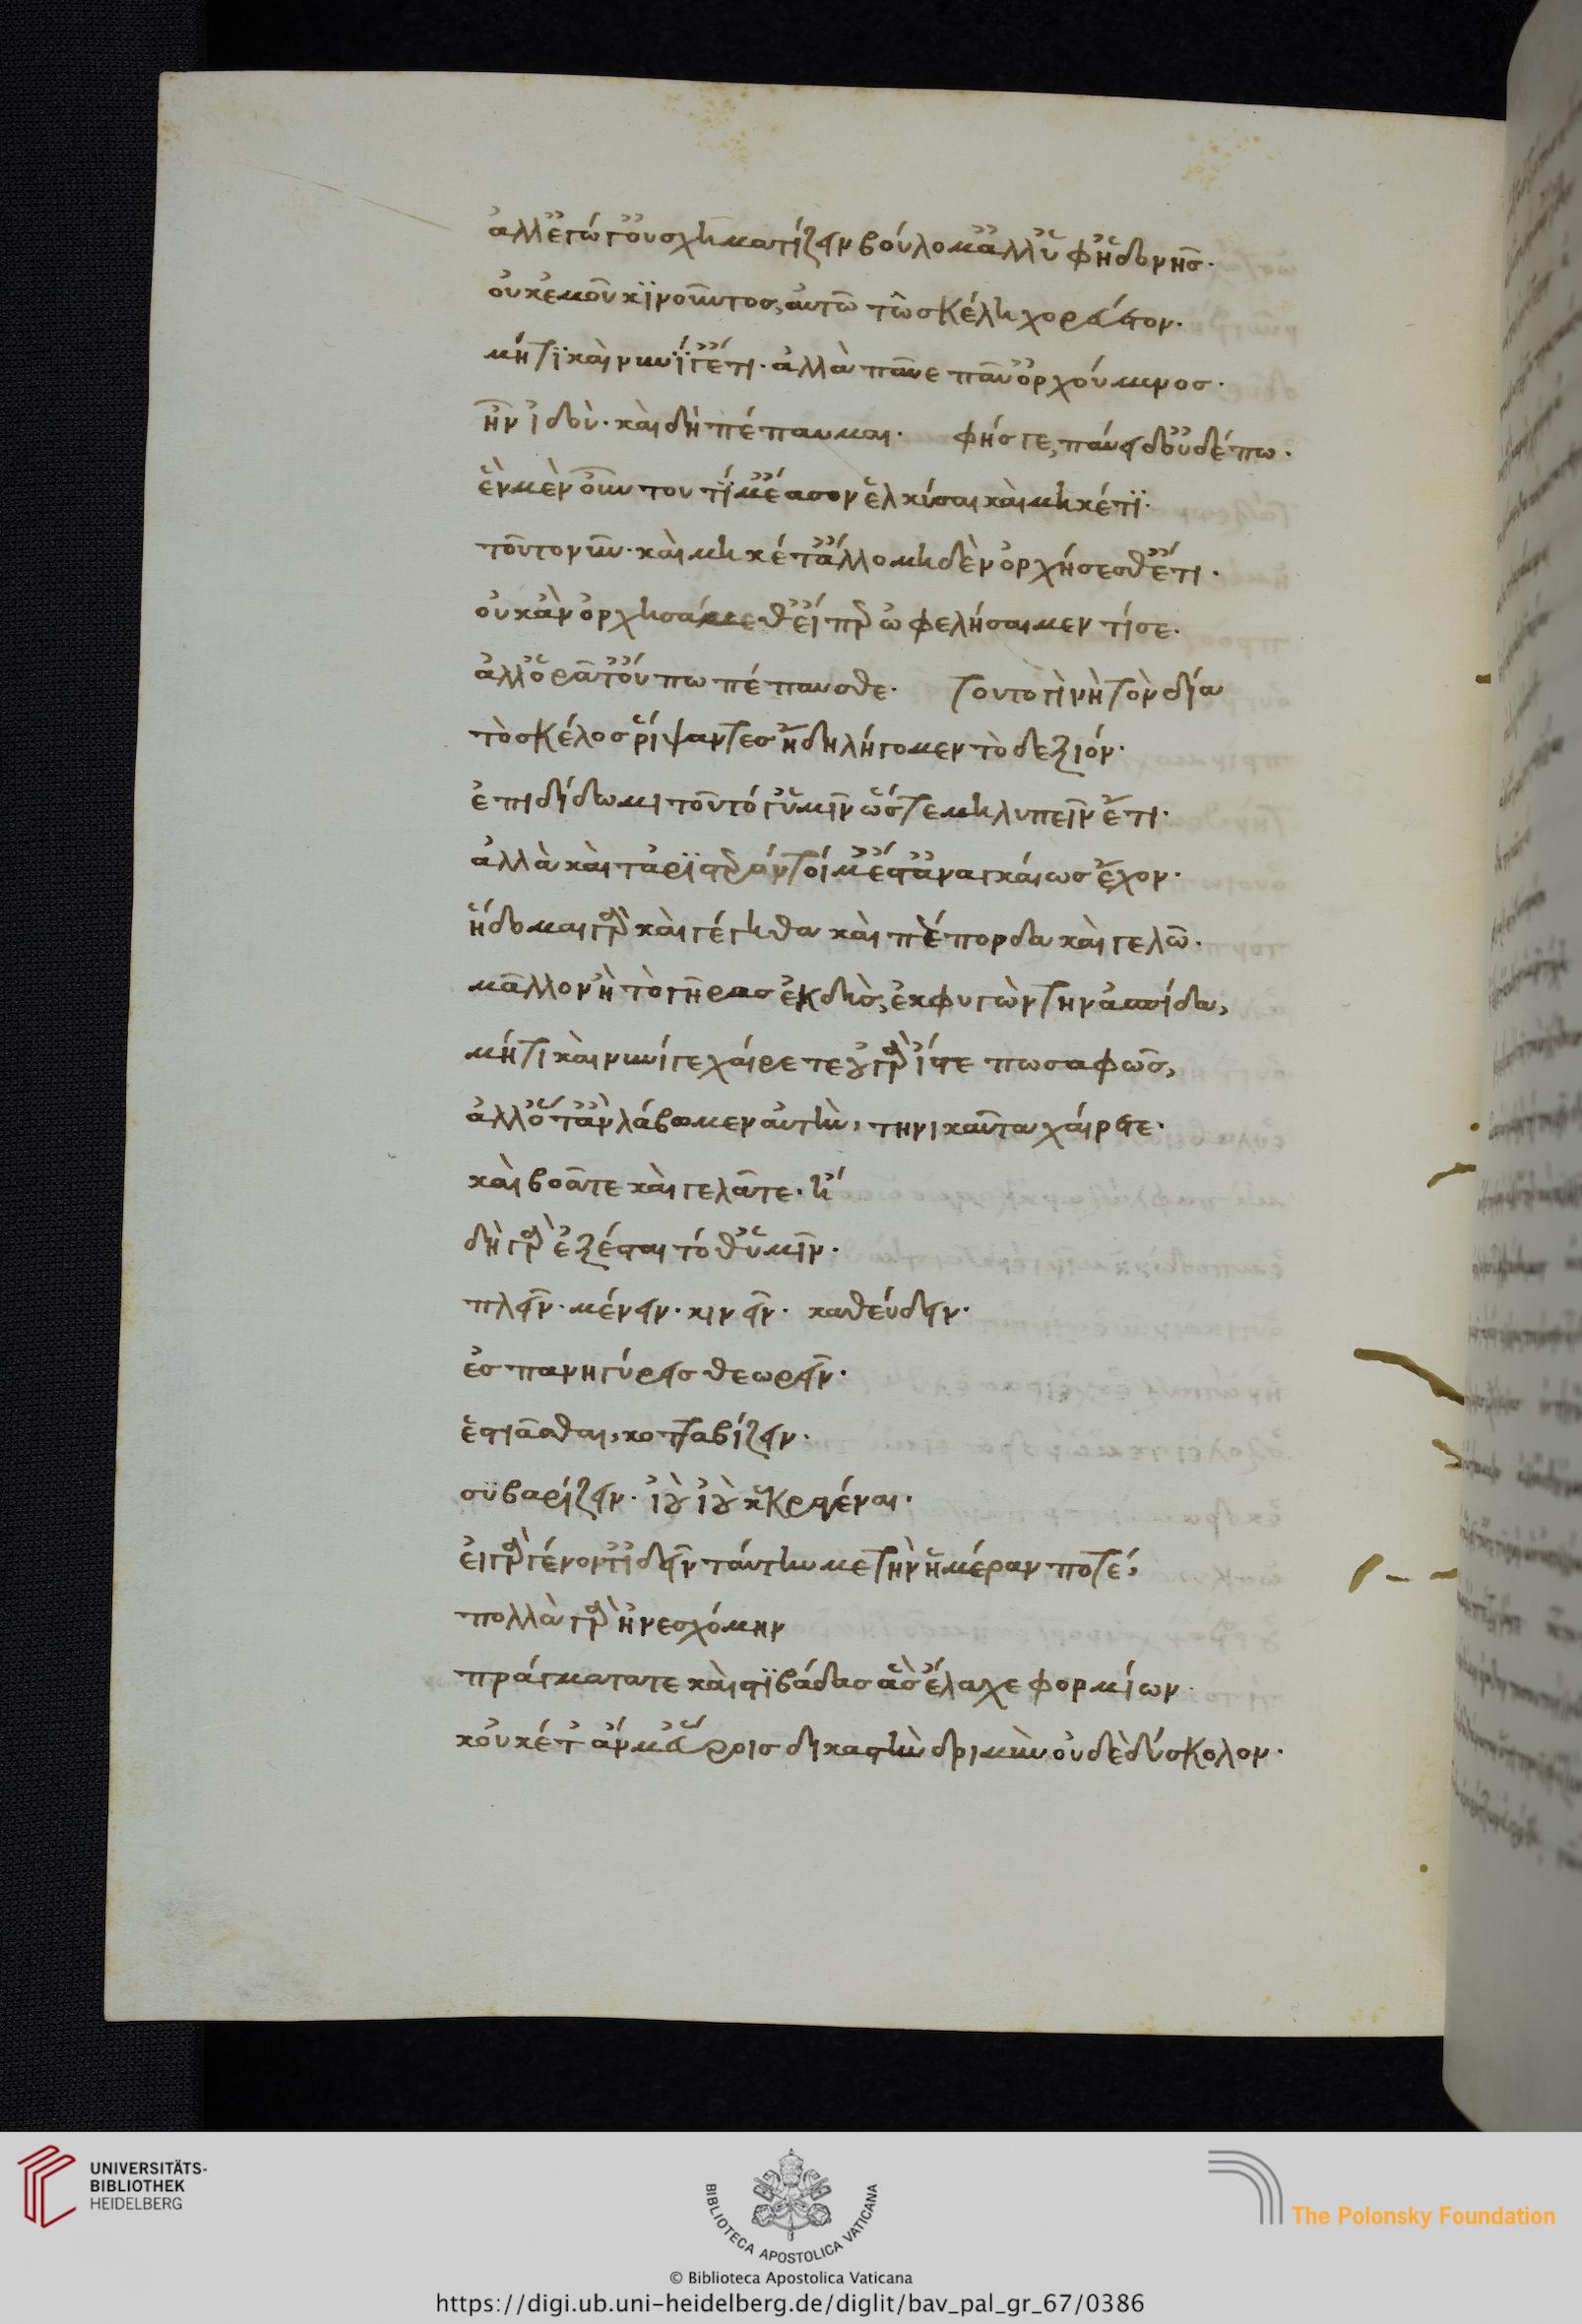 ἀλλ' ἔγωγ' οὐ σχηματίζειν βούλομ' ἀλλ' ὑφ' ἡδονῆς·
οὐκ ἐμοῦ κϊνοῦντος, αὐτὼ τὼ σκέλη χορεύετον·
μή τϊ καὶ νυνΐ γ' ἔτι· ἀλλὰ παῦε παῦ' ὀρχούμενος·
ἢν ἰδού· καὶ δὴ πέπαυμαι· φής γε, παύει δ' οὐδέπω·
ἓν μὲν οὖν τουτί μ' ἔασον ἑλκύσαι καὶ μηκέτϊ·
τοῦτο νυν· καὶ μηκέτ' ἄλλο μηδὲν ὀρχήσεσθ' ἔτι·
οὐκ ἂν ὀρχησαίμεθ' εἴπερ ὠφελήσαιμέν τί σε·
ἀλλ' ὁρᾶτ' οὔπω πέπαυσθε· τουτογὶ νὴ τὸν δία
τὸ σκέλος ῥίψαντες ἤδη λήγομεν τὸ δεξιόν·
ἐπιδίδωμι τοῦτό γ' ὑμῖν ὥστε μὴ λυπεῖν ἔτι·
ἀλλὰ καὶ τἀρϊστερόν τοί μ' ἔστ' ἀναγκαίως ἔχον·
ἥδομαι γὰρ καὶ γέγηθα καὶ πέπορδα καὶ γελῶ·
μᾶλλον ἢ τὸ γῆρας ἐκδὺς, ἐκφυγὼν τὴν ἀσπίδα,
μή τι καὶ νυνί γε χαίρετε οὐ γὰρ ἴστε πω σαφῶς,
ἀλλ' ὅτ' ἂν λάβωμεν αὐτὴν, τηνικαῦτα χαίρετε·
καὶ βοᾶτε καὶ γελᾶτε· ἤ
δη γὰρ ἐξέσται τόθ' ὑμῖν·
πλεῖν· μένειν· κινεῖν· καθεύδειν·
ἐς πανηγύρεις θεωρεῖν·
ἑστιᾶσθαι, κοτταβίζειν·
σϋβαρίζειν· ἰοὺ ἰοὺ κεκραγέναι·
εἰ γὰρ γένοιτ' ἰδεῖν ταύτην με τὴν ἡμέραν ποτέ,
πολλὰ γὰρ ἠνεσχόμην
πράγματά τε καὶ στϊβάδας ἃς ἔλαχε φορμίων·
κοὐκέτ' ἄν μ' εὕροις δικαστὴν δριμὺν οὐδὲ δύσκολον·
UNIVERSITÄTS-
BIBLIOTHEK
HEIDELBERG
BIBLIOTECA APOSTOLICA VATICANA
The Polonsky Foundation
© Biblioteca Apostolica Vaticana
https://digi.ub.uni-heidelberg.de/diglit/bav_pal_gr_67/0386